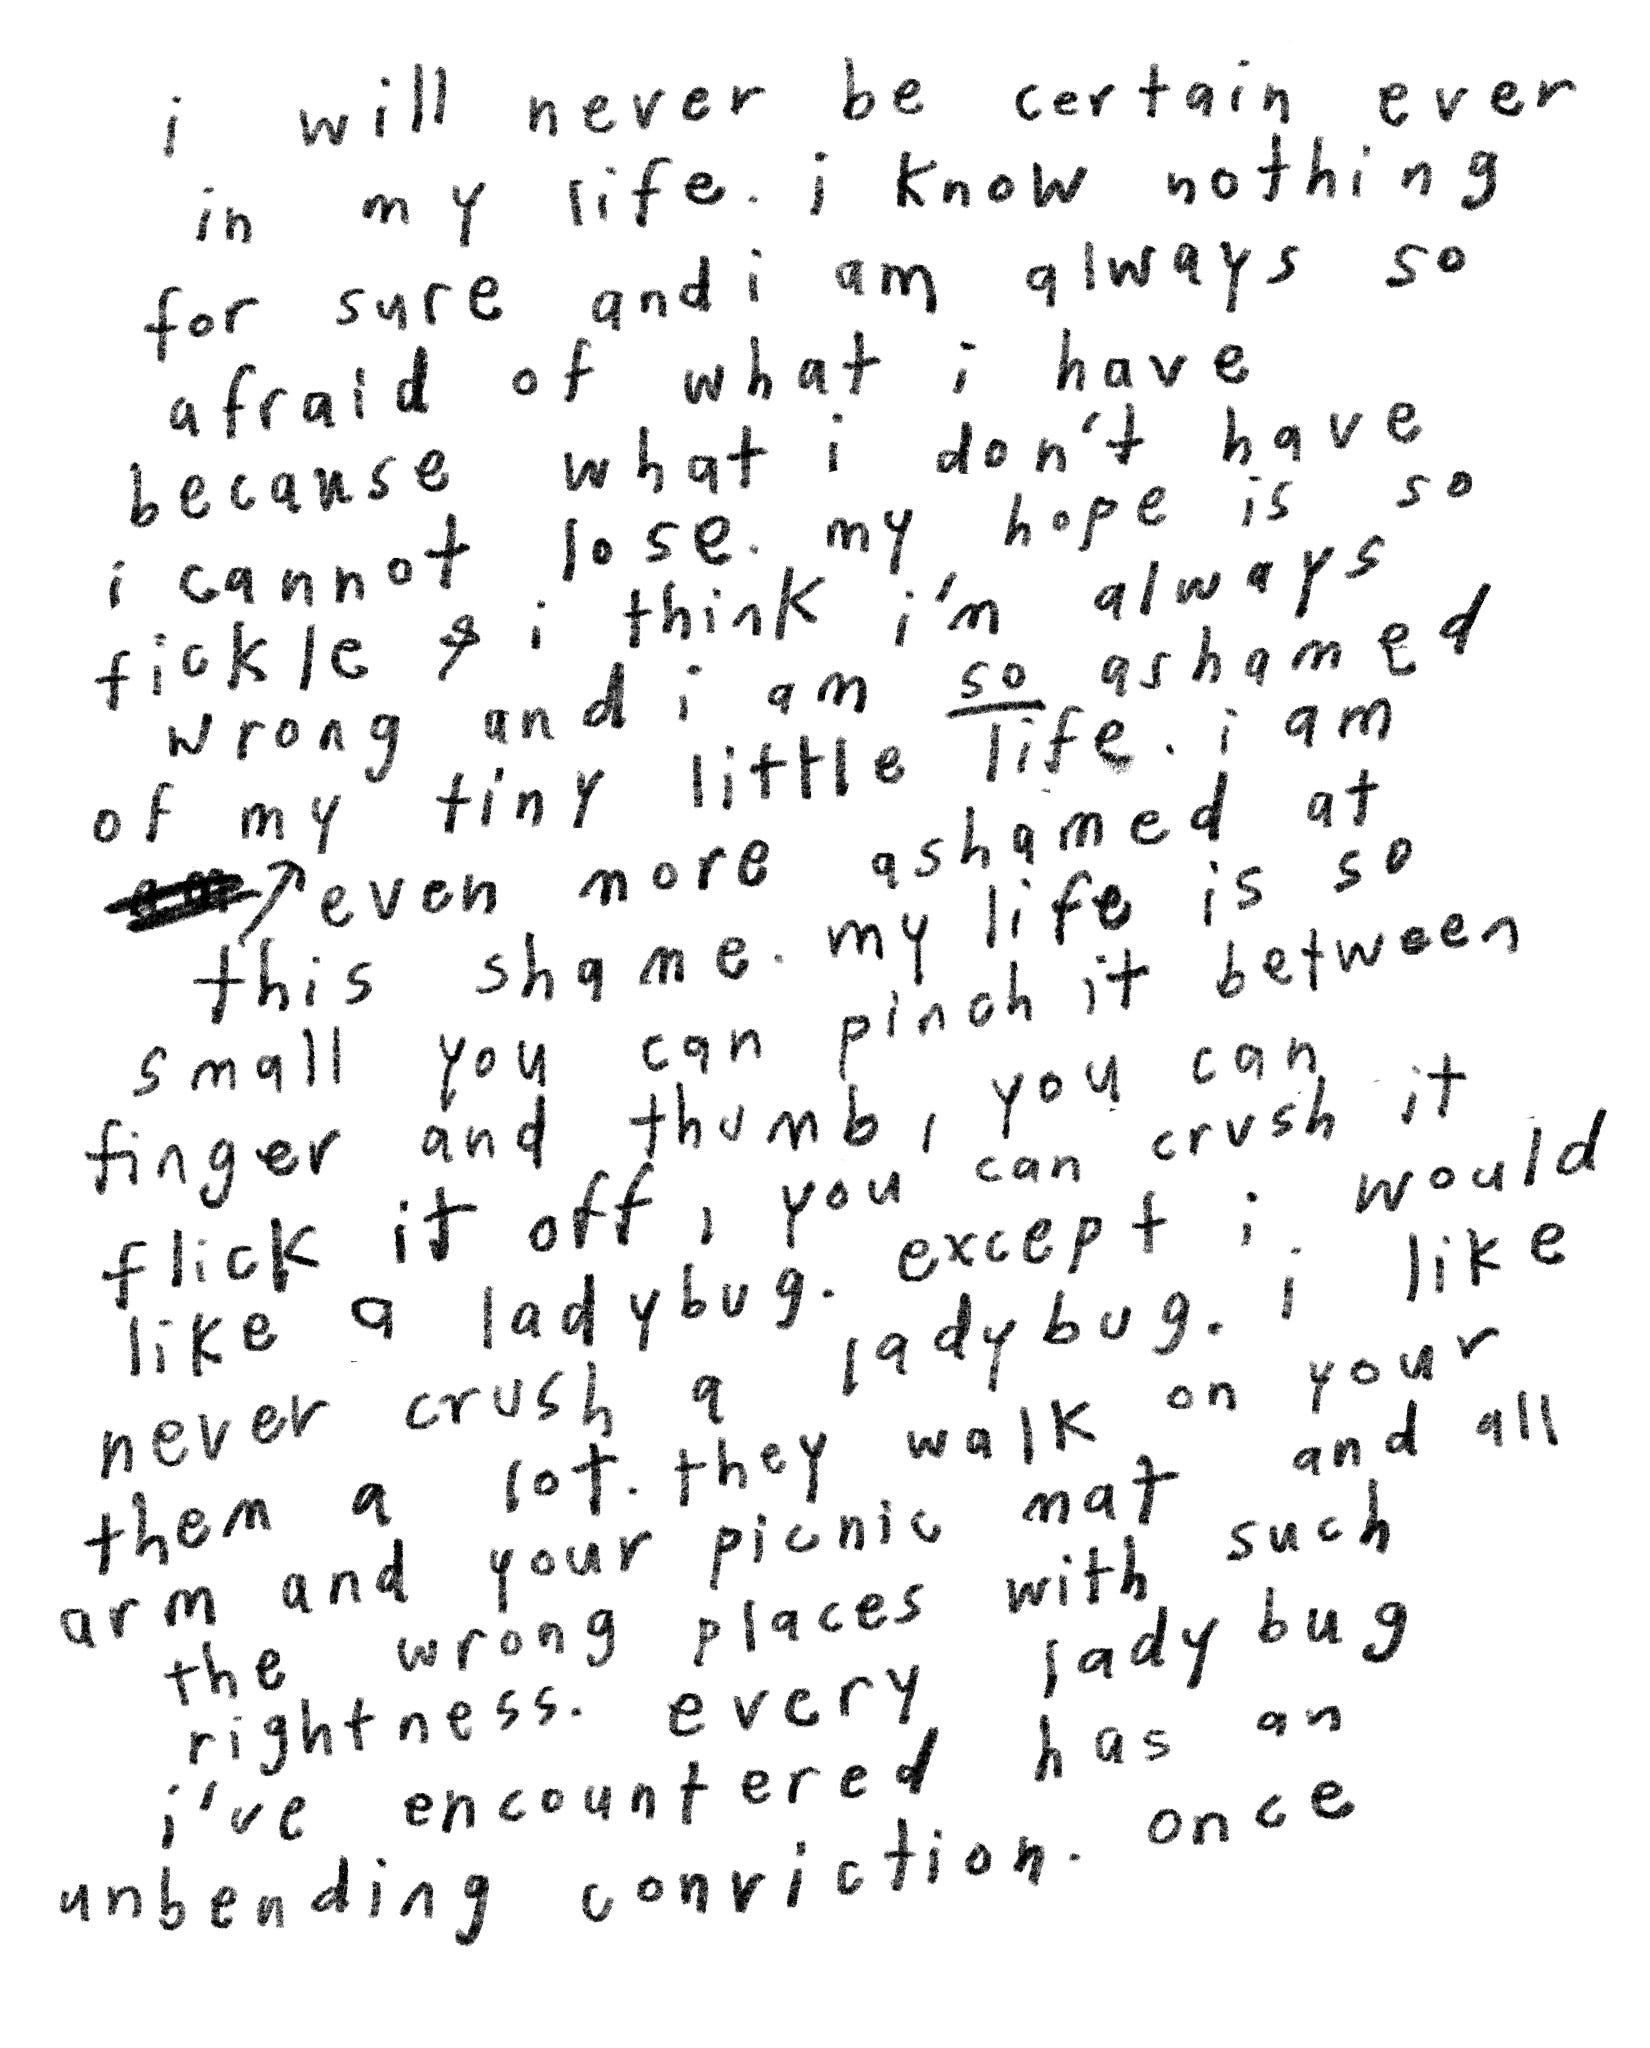 i will never be certain ever
in my life. i know nothing
for sure and i am always so
afraid of what i have
because what i don't have
i cannot lose. my hope is so
fickle & i think i'm always
wrong and i am so ashamed
of my tiny little life. i am
even more ashamed at
this shame. my life is so
small you can pinch it between
finger and thumb, you can
flick it off, you can crush it
like a ladybug. except i would
never crush a ladybug. i like
them a lot. they walk on your
arm and your picnic mat and all
the wrong places with such
rightness. every ladybug
i've encountered has an
unbending conviction. once